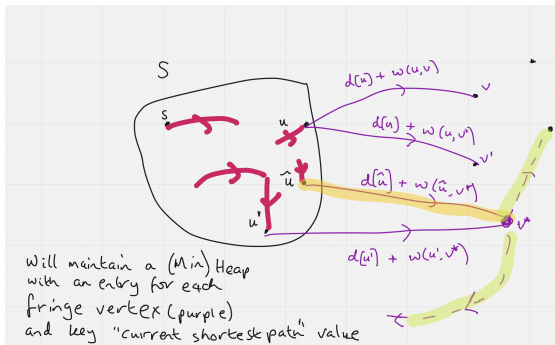 S
d[u] + w(u,v)
v
s
u
d[u] + w(u,v')
v'
û
d[û] + w(û,v*)
v*
u'
d[u'] + w(u',v*)
Will maintain a (Min) Heap
with an entry for each
fringe vertex (purple)
and key "current shortest path" value